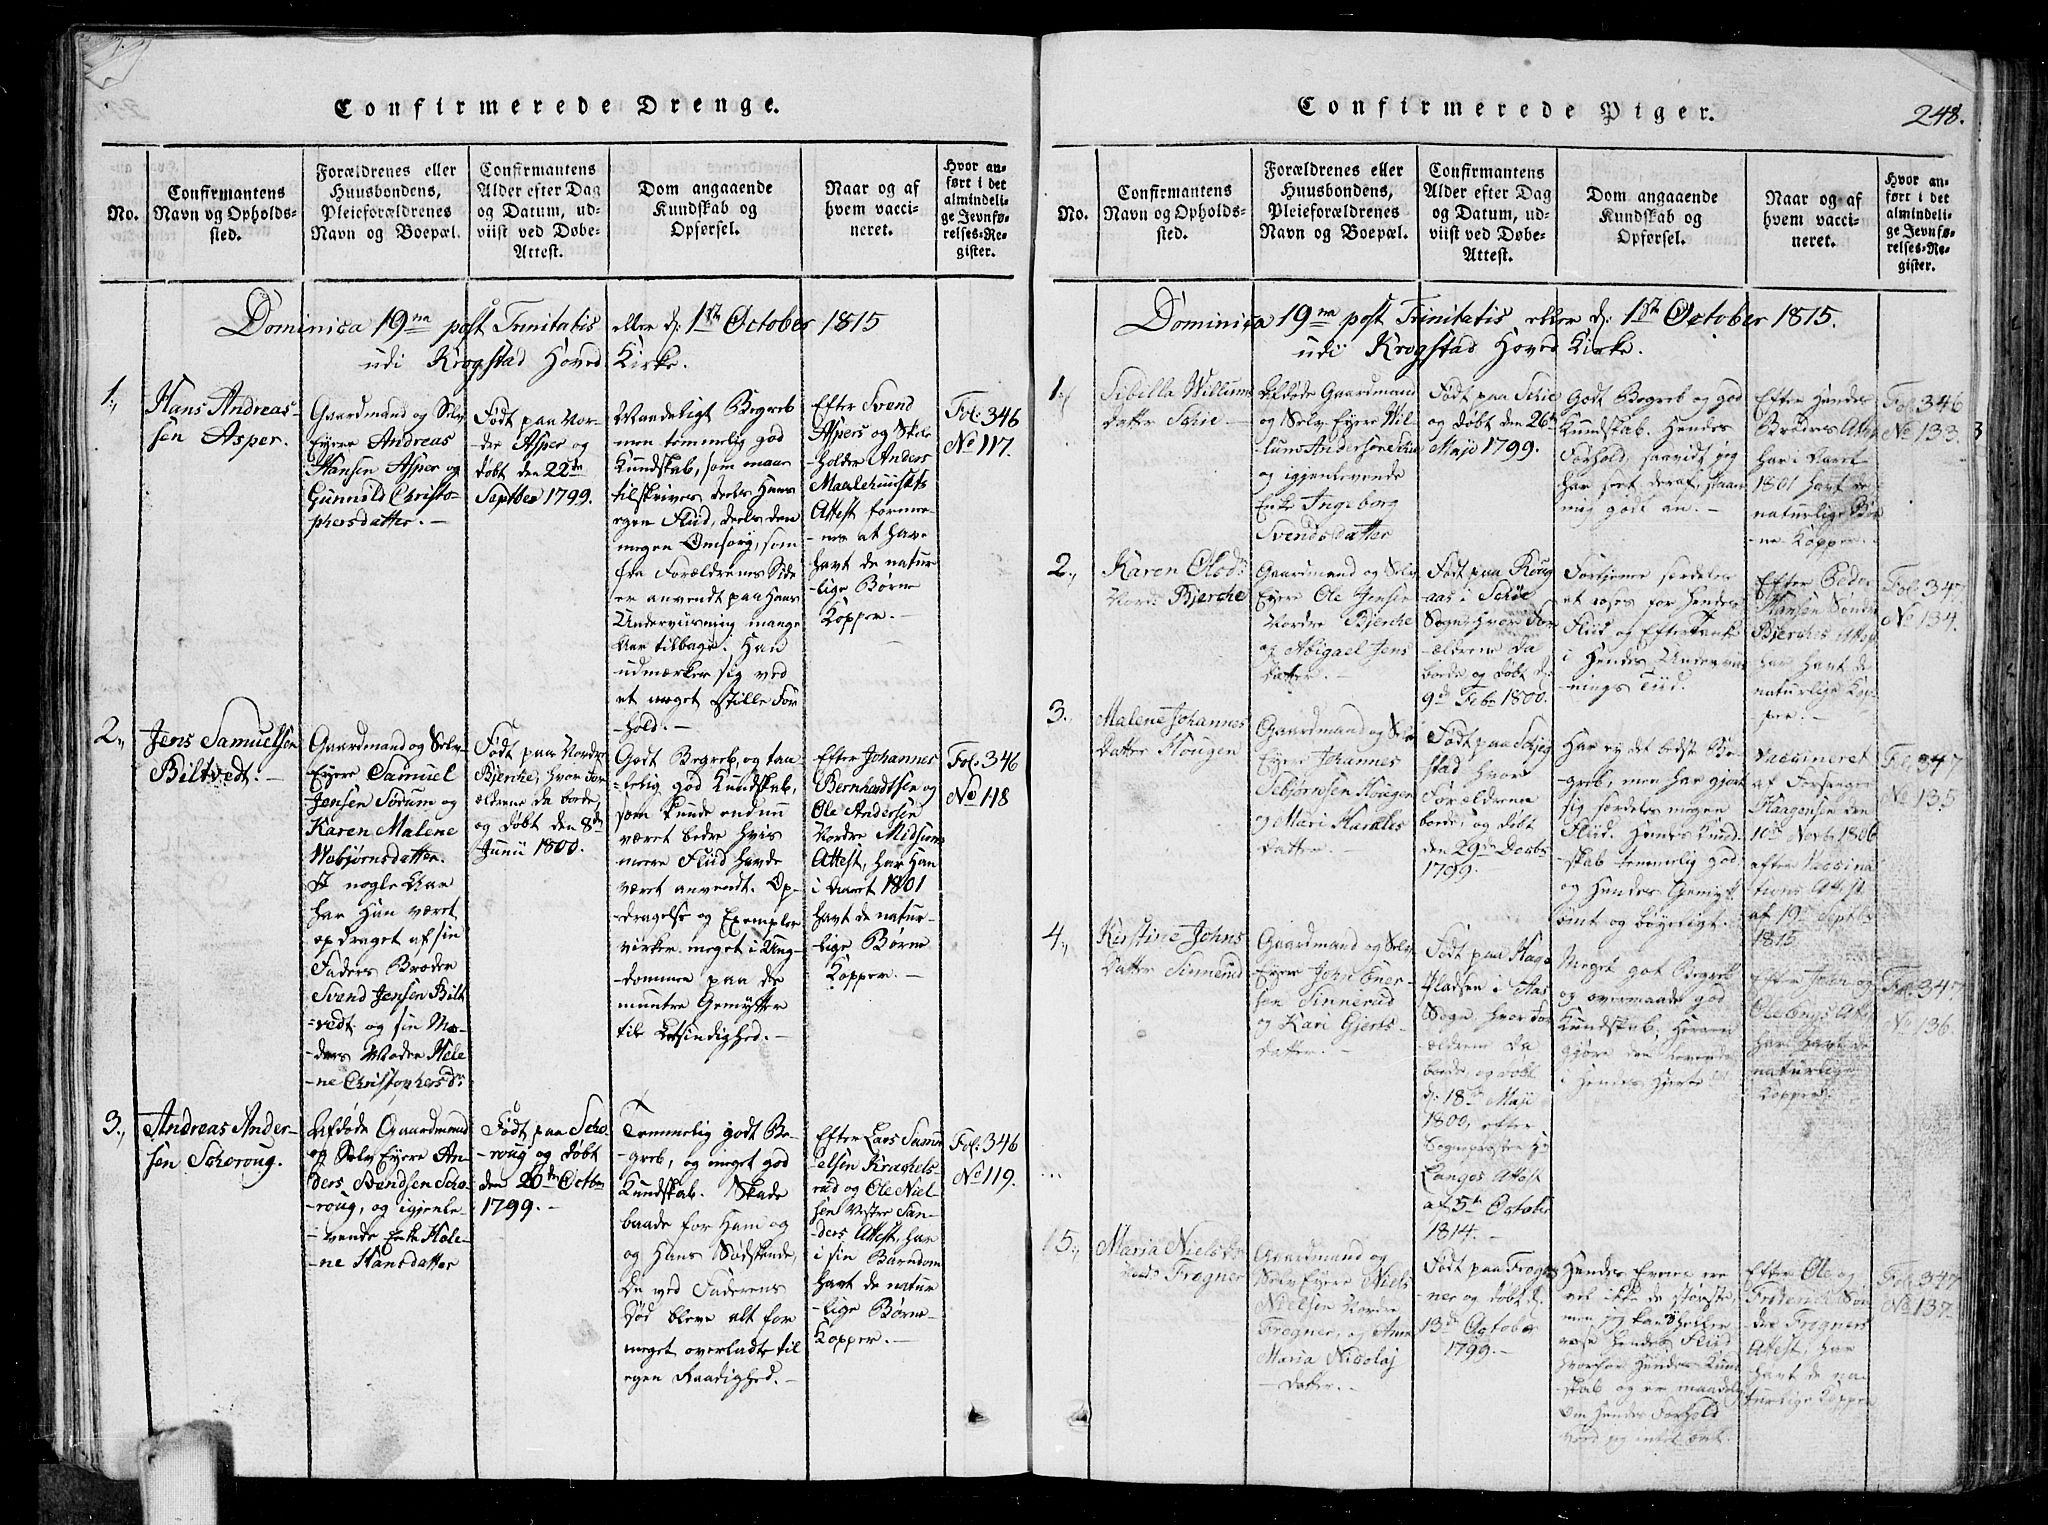 Confirmerede Drenge.
No.
Confirmantens
Navn og Opholds-
sted.
Forældrenes eller
Huusbondens,
Pleieforældrenes
Navn og Boepæl.
Confirmantens
Alder efter Dag
og Datum, ud-
viist ved Døbe-
Attest.
Dom angaaende
Kundskab og
Opførsel.
Naar og af
hvem vacci-
neret.
Hvor an-
ført i det
almindeli-
ge Jevnfø-
relses-Re-
gister.
Dominica 19na post Trinitatis eller d: 1ste October 1815
udi Krogstad Hoved Kirke.
1.,
Hans Andreas-
sen Asper.
Gaardmand og Selv
Eyere Andreas
Hansen Asper og
Gunnild Christo-
phersdatter. —
Født paa Nor-
dre Asper og
døbt den 22de
Septber 1799.
Maadeligt Begreb
men temmelig god
Kundskab, som maae
tilskrives deels Hans
egen Fliid, deels den
megen Omsorg, som
fra Forældrenes Side
er anvendt paa Hans
Underviisning mange
Aar tilbage. Han
udmærker sig ved
et meget stille For
-hold. —
Efter Svend
Aspers og Skole
holder Anders
Attest formee-
-ner at have
havt de natur
-lige Børne
Kopper. —
Fol: 346
No 117.
2.,
Jens Samuelsen
Biltvedt. —
Gaardmand og Selv-
Eyere Samuel
Jensen Sørum og
Karen Malene
Webjørnsdatter.
I nogle Aar
har Han været
opdraget af sin
Faders Broder
Svend Jensen Bilt
=vedt og sin Mo-
-ders Moder Hele
-ne Christophersdr
Født paa Nordre
Bjerche, hvor For
ældrene da boede,
og døbt den 8de
Junii 1800.
Godt Begreb, og taa
-lelig god Kundskab,
som kunde endnu
været bedre hvis
meere Fliid havde
været anvendt. Op-
-dragelse og Exempler
virker meget i Ung-
-dommen paa de
muntre Gemytter
til Letsindighed. —
Efter Johannes
Bernhardtsen og
Ole Andersen
Nordre Midsums
Attest, har Han
i Aaret 1801
havt de natur-
-lige Børne
Kopper. —
Fol: 346
No 118
3.,
Andreas Ander-
sen Schoroug.
Afdøde Gaardmand
og Selv Eyere An-
ders Svendsen Scho-
-roug, og igjenle-
-vende Enke Hele-
-ne Hansdatter
Født paa Scho
-roug og døbt
den 26de Octbr
1799. —
Temmelig godt Be-
-greb, og meget god
Kundskab. Skade
baade for Ham og
og Hans Sødskende,
Da ved Faderens
Død bleve alt for
meget overladte til
egen Raadighed. —
Efter Lars Samu
elsen Krachels-
rud og Ole Niel-
sen Vestre San-
ders Attest, har
i sin Barndom
havt de natur
-lige Børne-
Kopper. —
Fol: 346
No 119.
Confirmerede Piger.
248.
No.
Confirmantens
Navn og Opholds-
sted.
Forældrenes eller
Huusbondens,
Pleieforældrenes
Navn og Boepæl.
Confirmantens
Alder efter Dag
og Datum, ud-
viist ved Døbe-
Attest.
Dom angaaende
Kundskab og
Opførsel.
Naar og af
hvem vacci-
neret.
Hvor an-
ført i det
almindeli-
ge Jevnfø-
relses-Re-
gister.
Dominica 19na post Trinitatis eller d: 1ste October 1815.
udi Krogstad Hoved Kirke.
1.,
Sibilla Willums
datter Schie —
Afdøde Gaardmand
og Selv Eyere Wil-
lum Andersen Schie
og igjenlevende
Enke Ingeborg
Svendsdatter
Født paa Schie
og døbt den 26de
Maji 1799.
Godt Begreb og god
Kundskab. Hendes
Forhold, saavidt jeg
har seet deraf, staaer
mig godt an. —
Efter Hendes
Broders Attest
har i Aaret
1801 havt de
naturlige Bør
-ne Kopper. —
Fol: 346
No 133.
2.,
Karen Olsdr
Nord: Bjerche
Gaardmand og Selv
Eyere Ole Jensen
Nordre Bjerche
og Abigael Jens
datter. —
Født paa Roug
aas i Schie
Sogn, hvor For
ældrene da
boede og døbt d:
9de Febr 1800.
Fortjener særdeles
at roses for Hendes
Fliid og Eftertanke
i Hendes Underviis
-nings Tiid.
Efter Peder
Hansen Søndre
Bjerches Attest
har havt de
naturlige Kop-
-per. —
Fol: 347
No 134.
3.,
Malene Johannes
datter Hougen
Gaardmand og Selv
Eyere Johannes
Hougen
og Mari Haralds
datter. —
Født paa
stad hvor
Forældrene
boede, og døbt
den 29de Decbr
1799. —
Har ey det bedste Be-
greb, men har gjort
sig særdeles megen
Fliid. Hendes Kund-
skab temmelig god
og Hendes Gemyt
ømt og bøyeligt. —
Vaccineret
af Forsanger
Haagensen den
10de Novbr 1806
efter Vaccina
tions Attest
af 19de Septbr
1815.
Fol: 347
No 135
4.,
Kirstine Johns
datter Sinnerud
Gaardmand og Selv
Eyere John Ener-
sen Sinnerud
og Kari Gjerts-
datter. —
Født paa Hage
Pladsen i Aas
Sogn, hvor For
ældrene da
boede, og døbt
d: 18de Maji
1800, efter
Sognepræsten Hr
Langes Attest
af 5te October
1814. —
Meget got Begreb
og overmaade god
Kundskab, Herren
gjøre den levende
i Hendes Hierte
Efter John og
har havt de
naturlige
Kopper. —
Fol: 347
No 136
5.,
Maria Niels Dr
Nord: Frogner
Gaardmand og
Selv Eyere Niels
Nielsen Nordre
Frogner, og Anne
Maria Nicolaj
—datter. —
Født paa Frog-
ner og døbt d.
13de October
1799. —
Hendes Evner ere
vel ikke de største,
men jeg kan heller
rose Hendes Fliid
hvorfor Hendes Kund
-skab og er maadelig
Om Hendes Forhold
veed jeg intet ont.
Efter Ole og
Friderich Søn
dre Frogners
Attest, har
havt de na-
turlige Kopper
Fol: 347
No 137